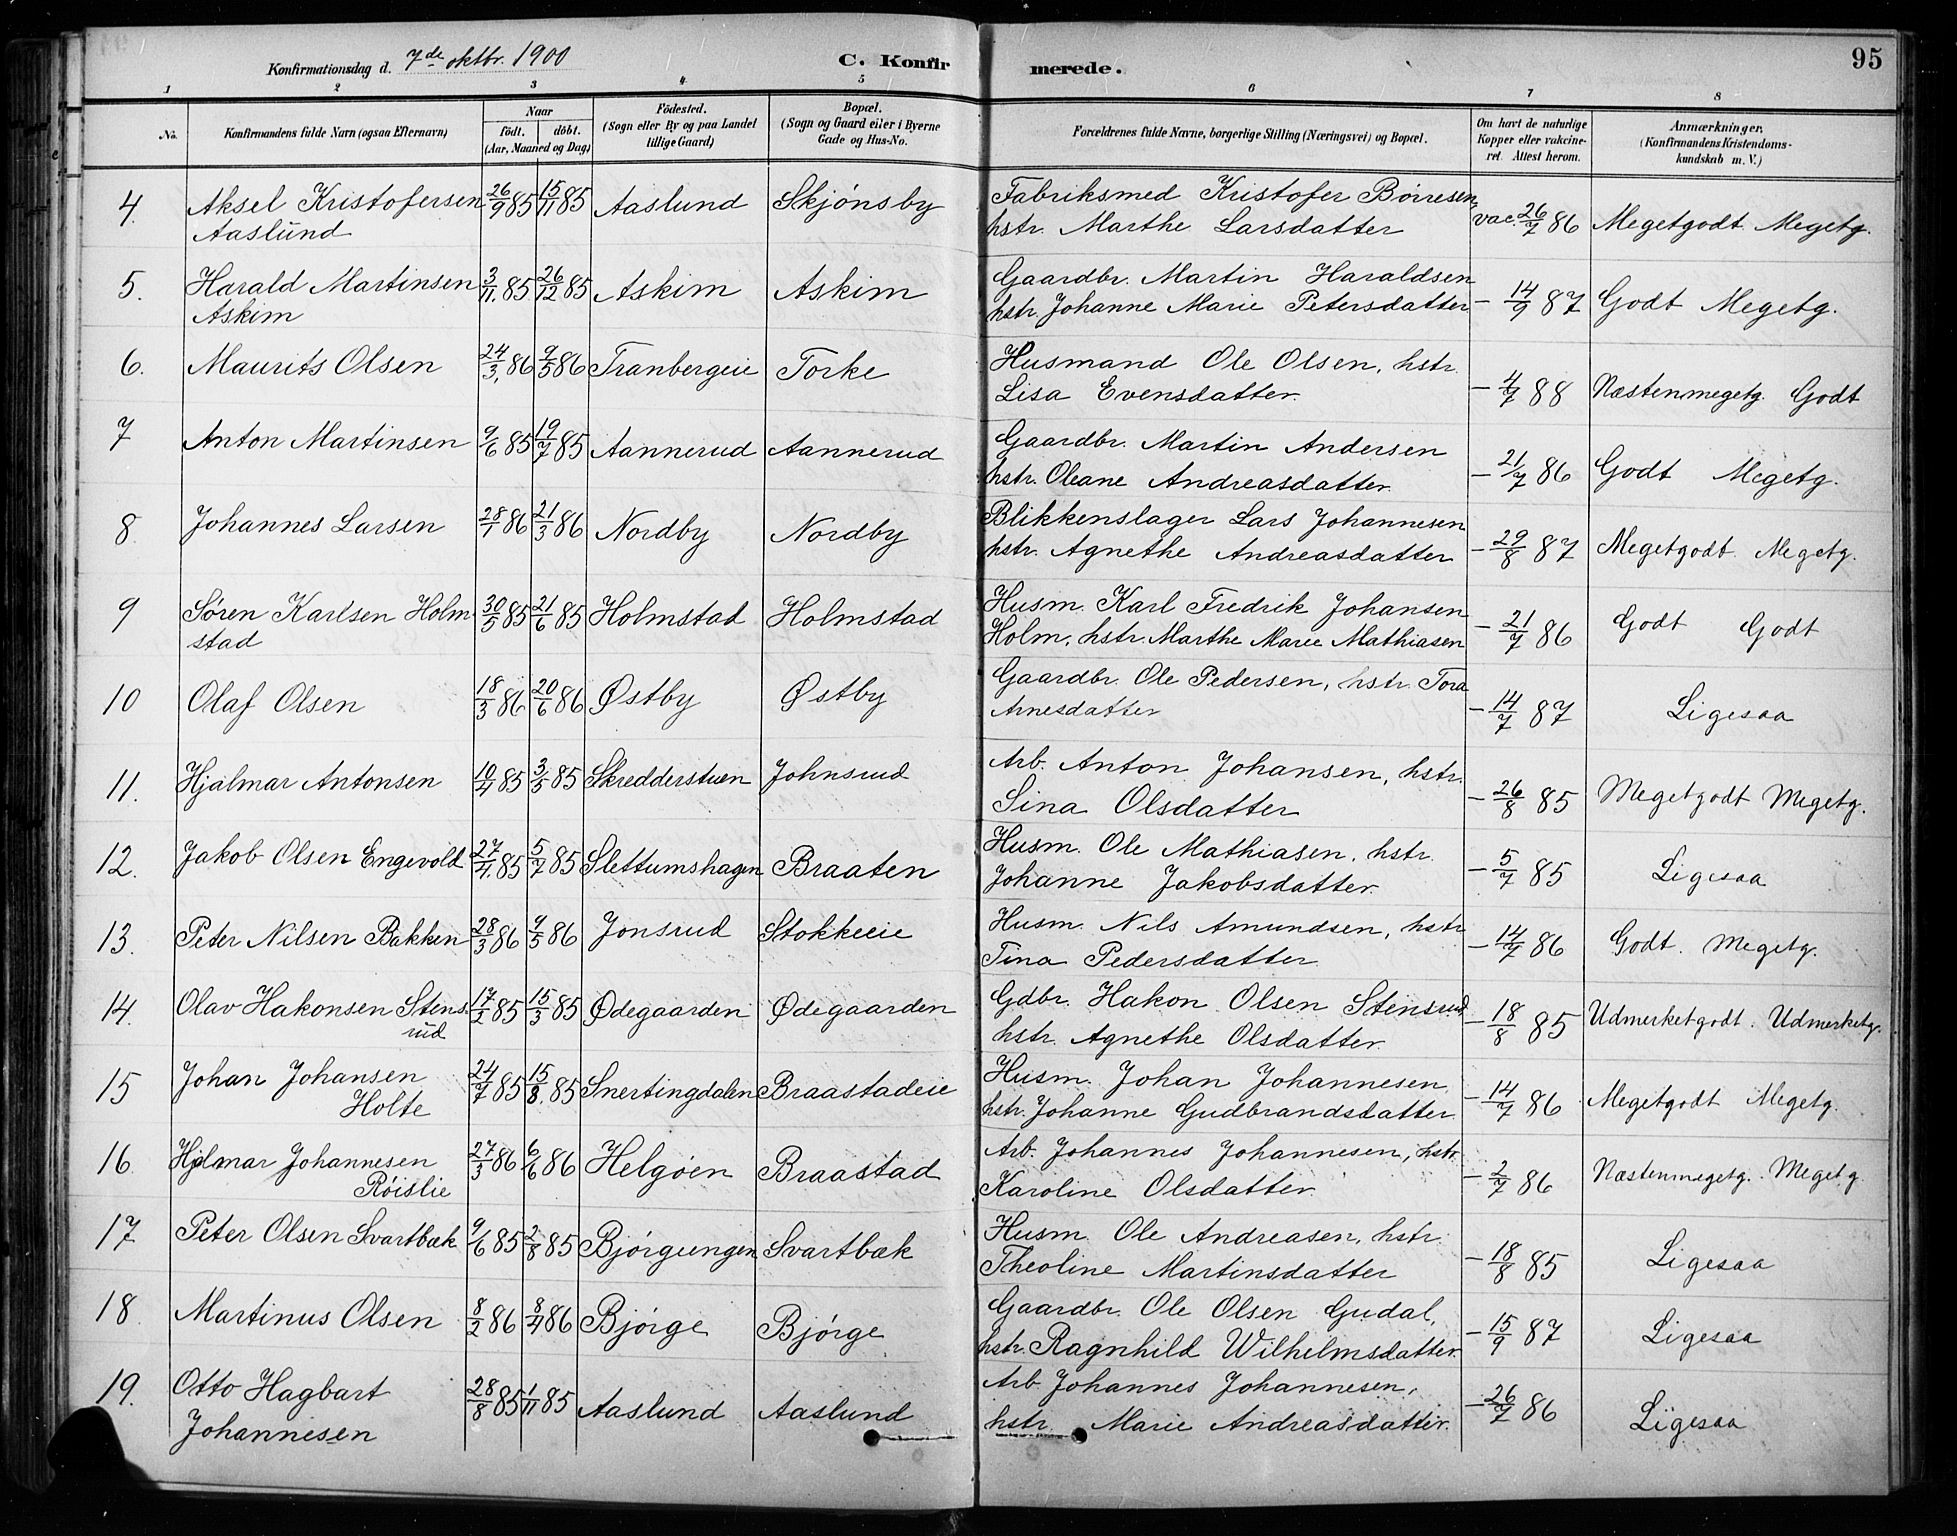 Konfirmationsdag d. 7de oktbr. 1900 C. Konfirmerede. 95
1 2 3 4 5 6 7 8
No. Konfirmandens fulde Navn (ogsaa Efternavn) Naar födt. döbt. (Aar, Maaned og Dag) Födested. (Sogn eller By og paa Landet tillige Gaard) Bopæl. (Sogn og Gaard eller i Byerne Gade og Hus-No. Forældrenes fulde Navne, borgerlige Stilling (Næringsvei) og Bopæl. Om havt de naturlige Kopper eller vakcineret. Attest herom. Anmærkninger. (Konfirmandens Kristendomskundskab m. V.)
4. Aksel Kristofersen 26/9 85 15/11 85 Aaslund Skjönsby Fabriksmed Kristofer Börresen, vac. 26/7 86 Megetgodt. Megetg.
Aaslund hstr. Marthe Larsdatter
5. Harald Martinsen 3/11. 85 26/12 85 Askim Askim Gaardbr. Martin Haraldsen – 14/9 87 Godt Megetg.
Askim hstr. Johanne Marie Petersdatter
6. Maurits Olsen 24/3. 86 9/5 86 Tranbergeie Torke Husmand Ole Olsen, hstr. – 4/7 88 Næstenmegetg. Godt
Lisa Evensdatter.
7 Anton Martinsen 9/6 85 19/7 85 Aannerud Aannerud Gaardbr. Martin Andersen – 21/7 86 Godt Megetg.
hstr. Oleane Andreasdatter.
8. Johannes Larsen 28/1 86 21/3 86 Nordby Nordby Blikkenslager Lars Johannesen – 29/8 87 Megetgodt. Megetg.
hstr. Agnethe Andreasdatter
9 Sören Karlsen Holm- 30/5 85 21/6 85 Holmstad Holmstad Husm. Karl Fredrik Johansen – 21/7 86 Godt Godt
stad Holm, hstr. Marthe Marie Mathiasen
10 Olaf Olsen 18/3 86 20/6 86 Østby Østby Gaardbr. Ole Pedersen, hstr. Tora – 14/7 87 Ligesaa
Arnesdatter
11. Hjalmar Antonsen 10/4 85 3/5 85 Skredderstuen Johnsrud Arb. Anton Johansen, hstr. – 26/8 85 Megetgodt Megetg.
Sina Olsdatter
12. Jakob Olsen Engevold 27/4. 85 5/7 85 Slettumshagen Braaten Husm. Ole Mathiasen, hstr. – 5/7 85 Ligesaa
Johanne Jakobsdatter.
13. Peter Nilsen Bakken 28/3 86 9/5 86 Jonsrud Stokkeeie Husm. Nils Amundsen, hstr – 14/7 86 Godt. Megetg.
Tina Pedersdatter
14. Olav Hakonsen Stens- 17/2 85 15/3 85 Ødegaarden Ødegaarden Gdbr. Hakon Olsen Stensrud – 18/8 85 Udmerketgodt. Udmerketg.
rud hstr. Agnethe Olsdatter.
15 Johan Johansen 24/7 85 15/8. 85 Snertingdalen Braastadeie Husm. Johan Johannesen – 14/7 86 Megetgodt Megetg.
Holte hstr. Johanne Gudbrandsdatter
16. Hjalmar Johannesen 27/3 86 6/6 86 Helgöen Braastad Arb. Johannes Johannesen, hstr. – 2/7 86 Næstenmegetg. Megetg
Röislie Karoline Olsdatter
17 Peter Olsen Svartbæk 9/6 85 2/8 85 Bjørgeengen Svartbæk Husm. Ole Andreasen, hstr. – 18/8 85 Ligesaa
Theoline Martinsdatter
18. Martinus Olsen 8/2 86 8/4 86 Bjørge Bjørge Gaardbr. Ole Olsen Gudal, – 15/9 87 Ligesaa
hstr. Ragnhild Wilhelmsdatter.
19. Otto Hagbart 28/8 85 1/11 85 Aaslund Aaslund Arb Johannes Johannesen, – 26/7 86 Ligesaa
Johannesen hstr. Marie Andreasdatter.